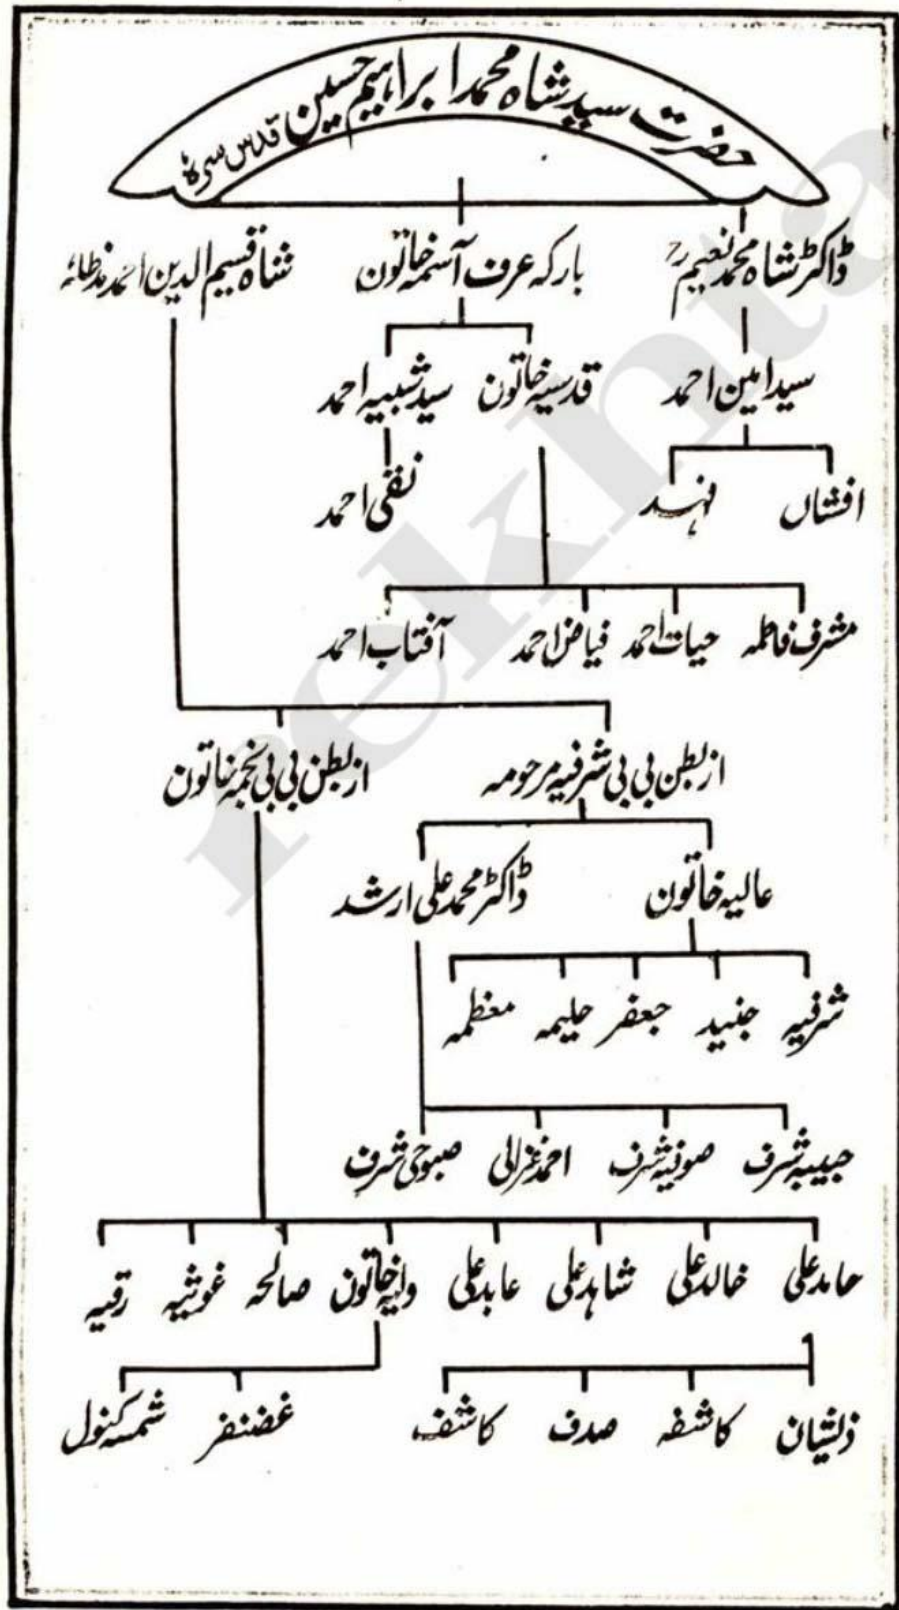 حضرت سید شاہ محمد ابراہیم حسین قدس سرہٗ
ڈاکٹر شاہ محمد نعیم رح بارکہ عرف آسمہ خاتون شاہ قسیم الدین احمد مدظلہٗ
سید امین احمد قدسیہ خاتون سید شبیہ احمد
افشاں فہد نقی احمد
مشرف فاطمہ حیات احمد فیاض احمد آفتاب احمد
از بطن بی بی شرفیہ مرحومہ از بطن بی بی نجمہ خاتون
عالیہ خاتون ڈاکٹر محمد علی ارشد
شرفیہ جنید جعفر حلیمہ معظمہ
حبیبہ شرف صوفیہ شرف احمد غزالی صبوحی شرف
حامد علی خالد علی شاہد علی عابد علی خاتون صالحہ غوثیہ رقیہ
ذیشان کاشفہ صدف کاشف غضنفر شمسہ کنول
rekhta